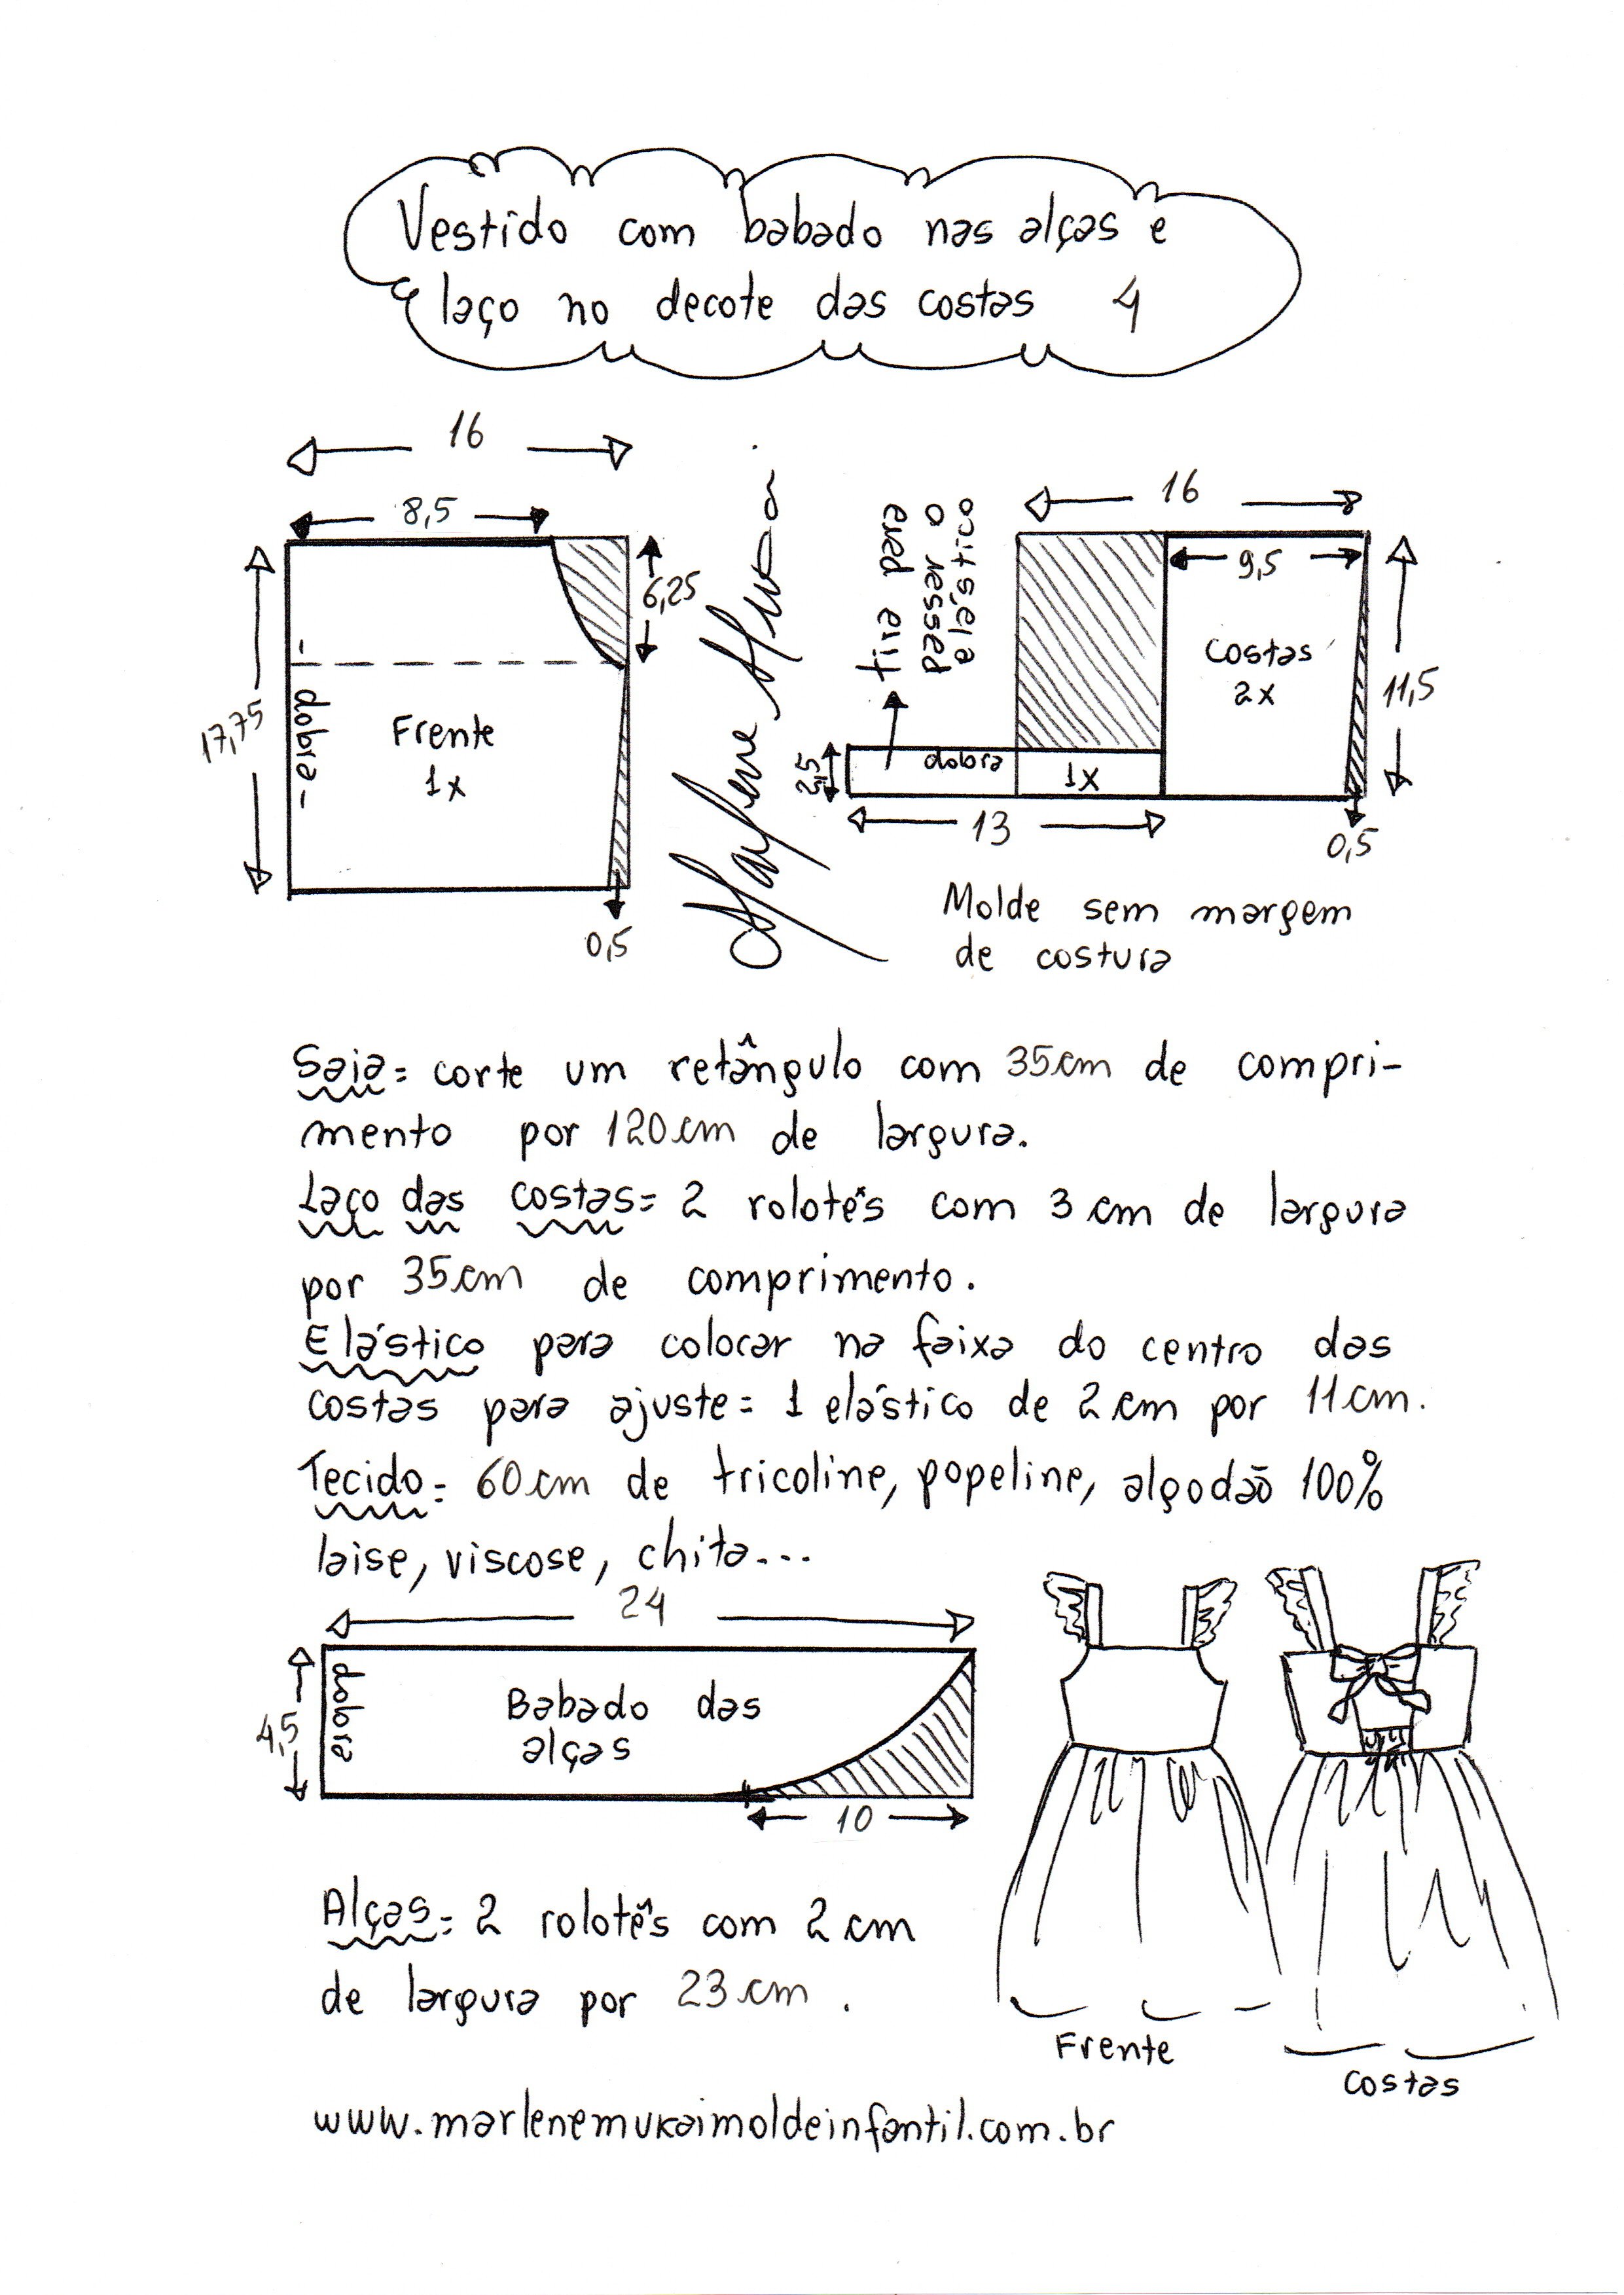 Vestido com babado nas alças e
laço no decote das costas 4
16
8,5
6,25
17,75
- dobra -
Frente
1x
0,5
Marlene Mukai
16
tira para
passar o
elástico
9,5
Costas
2x
11,5
2,5
dobra
1x
13
0,5
Molde sem margem
de costura
Saia= corte um retângulo com 35cm de compri-
mento por 120cm de largura.
Laço das costas= 2 rolotês com 3 cm de largura
por 35cm de comprimento.
Elástico para colocar na faixa do centro das
costas para ajuste= 1 elástico de 2 cm por 11cm.
Tecido= 60cm de tricoline, popeline, algodão 100%
laise, viscose, chita...
24
dobra
Babado das
alças
4,5
10
Alças= 2 rolotês com 2 cm
de largura por 23 cm .
Frente
Costas
www.marlenemukaimoldeinfantil.com.br